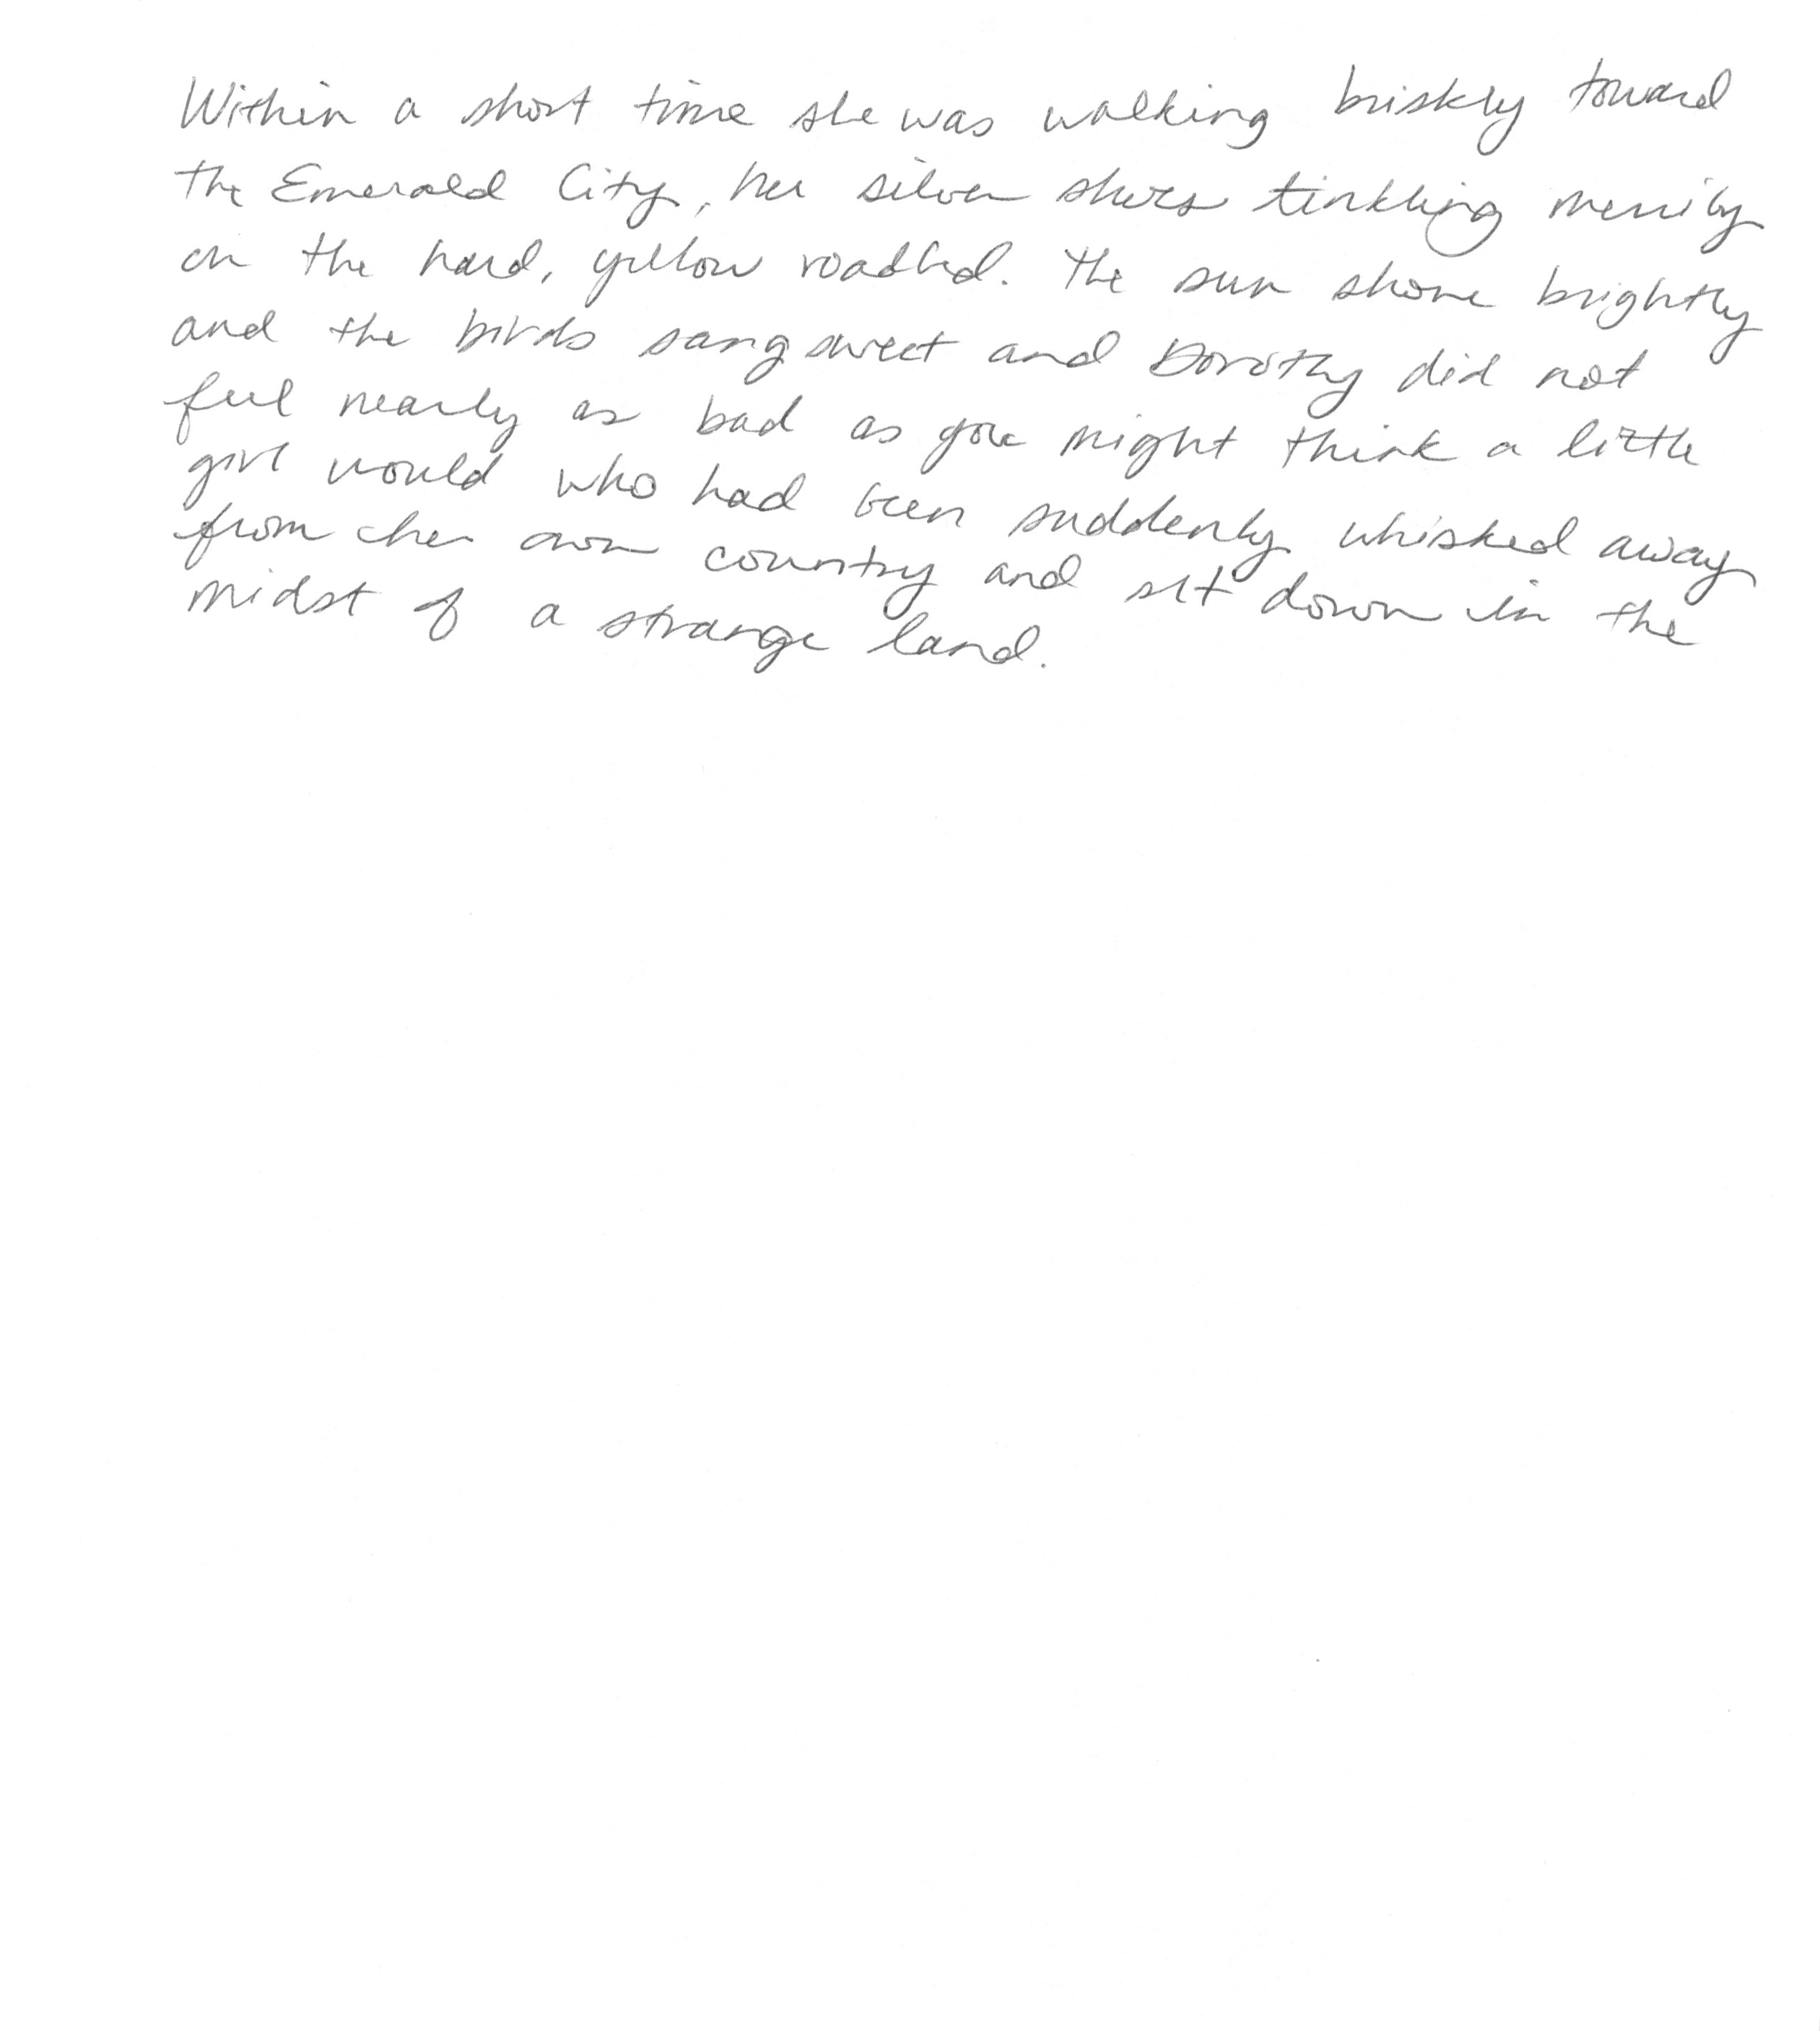 Within a short time she was walking briskly toward
the Emerald City, her silver shoes tinkling merrily
on the hard, yellow roadbed. The sun shone brightly
and the birds sang sweet and Dorothy did not
feel nearly as bad as you might think a little
girl would who had been suddenly whisked away
from her own country and set down in the
midst of a strange land.